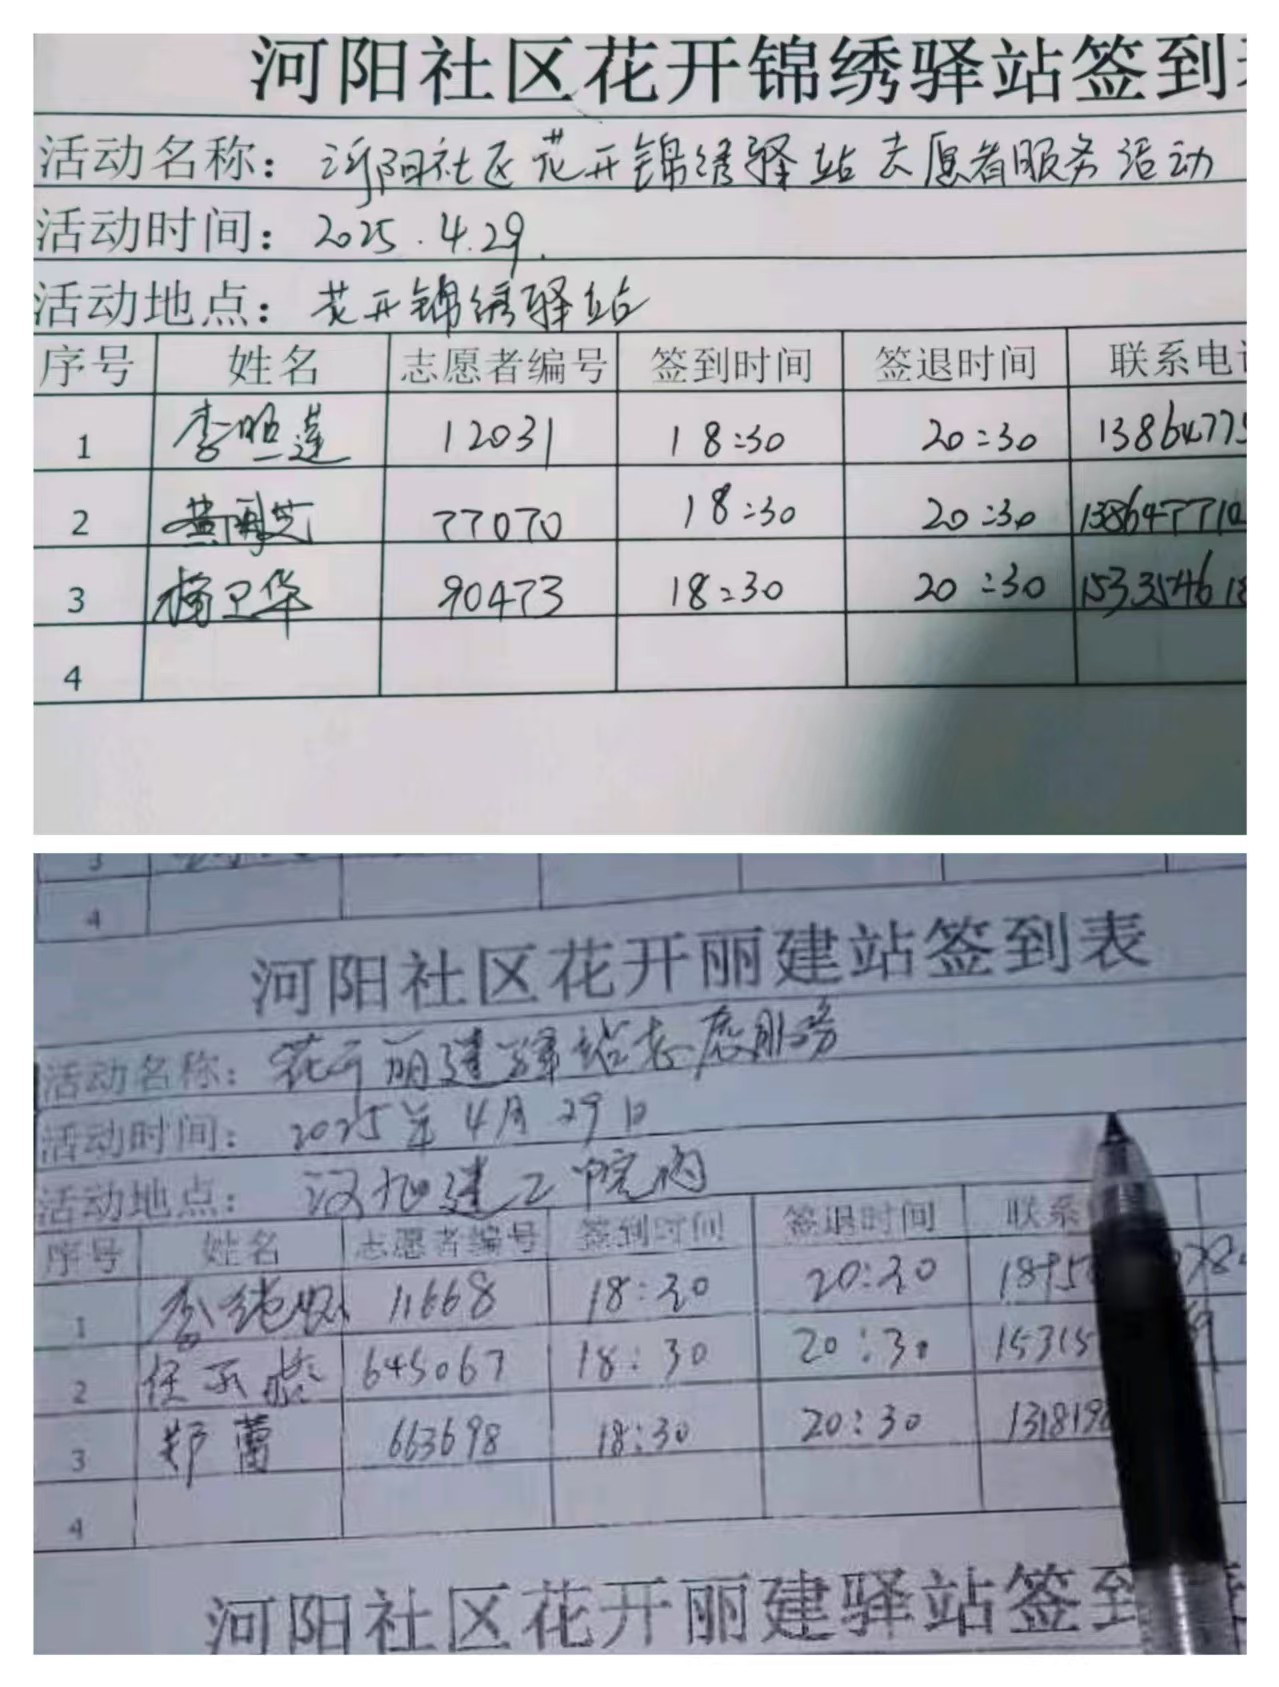 河阳社区花开锦绣驿站签到
活动名称：沂阳社区花开锦绣驿站志愿者服务活动
活动时间：2025.4.29.
活动地点：花开锦绣驿站
序号 姓名 志愿者编号 签到时间 签退时间 联系电
1 李照莲 12031 18:30 20:30 13864775
2 黄 芝 77070 18:30 20:30 1386477710
3 杨卫华 90473 18:30 20:30 153354618
4
3
4
河阳社区花开丽建站签到表
活动名称：花开丽建驿站志愿服务
活动时间：2025年4月29日
活动地点：汉旭建工院内
序号 姓名 志愿者编号 签到时间 签退时间 联系
1 李 11668 18:30 20:30 1895 78
2 任 645067 18:30 20:30 15315 9
3 郑蕾 663698 18:30 20:30 1318198
4
河阳社区花开丽建驿站签到表